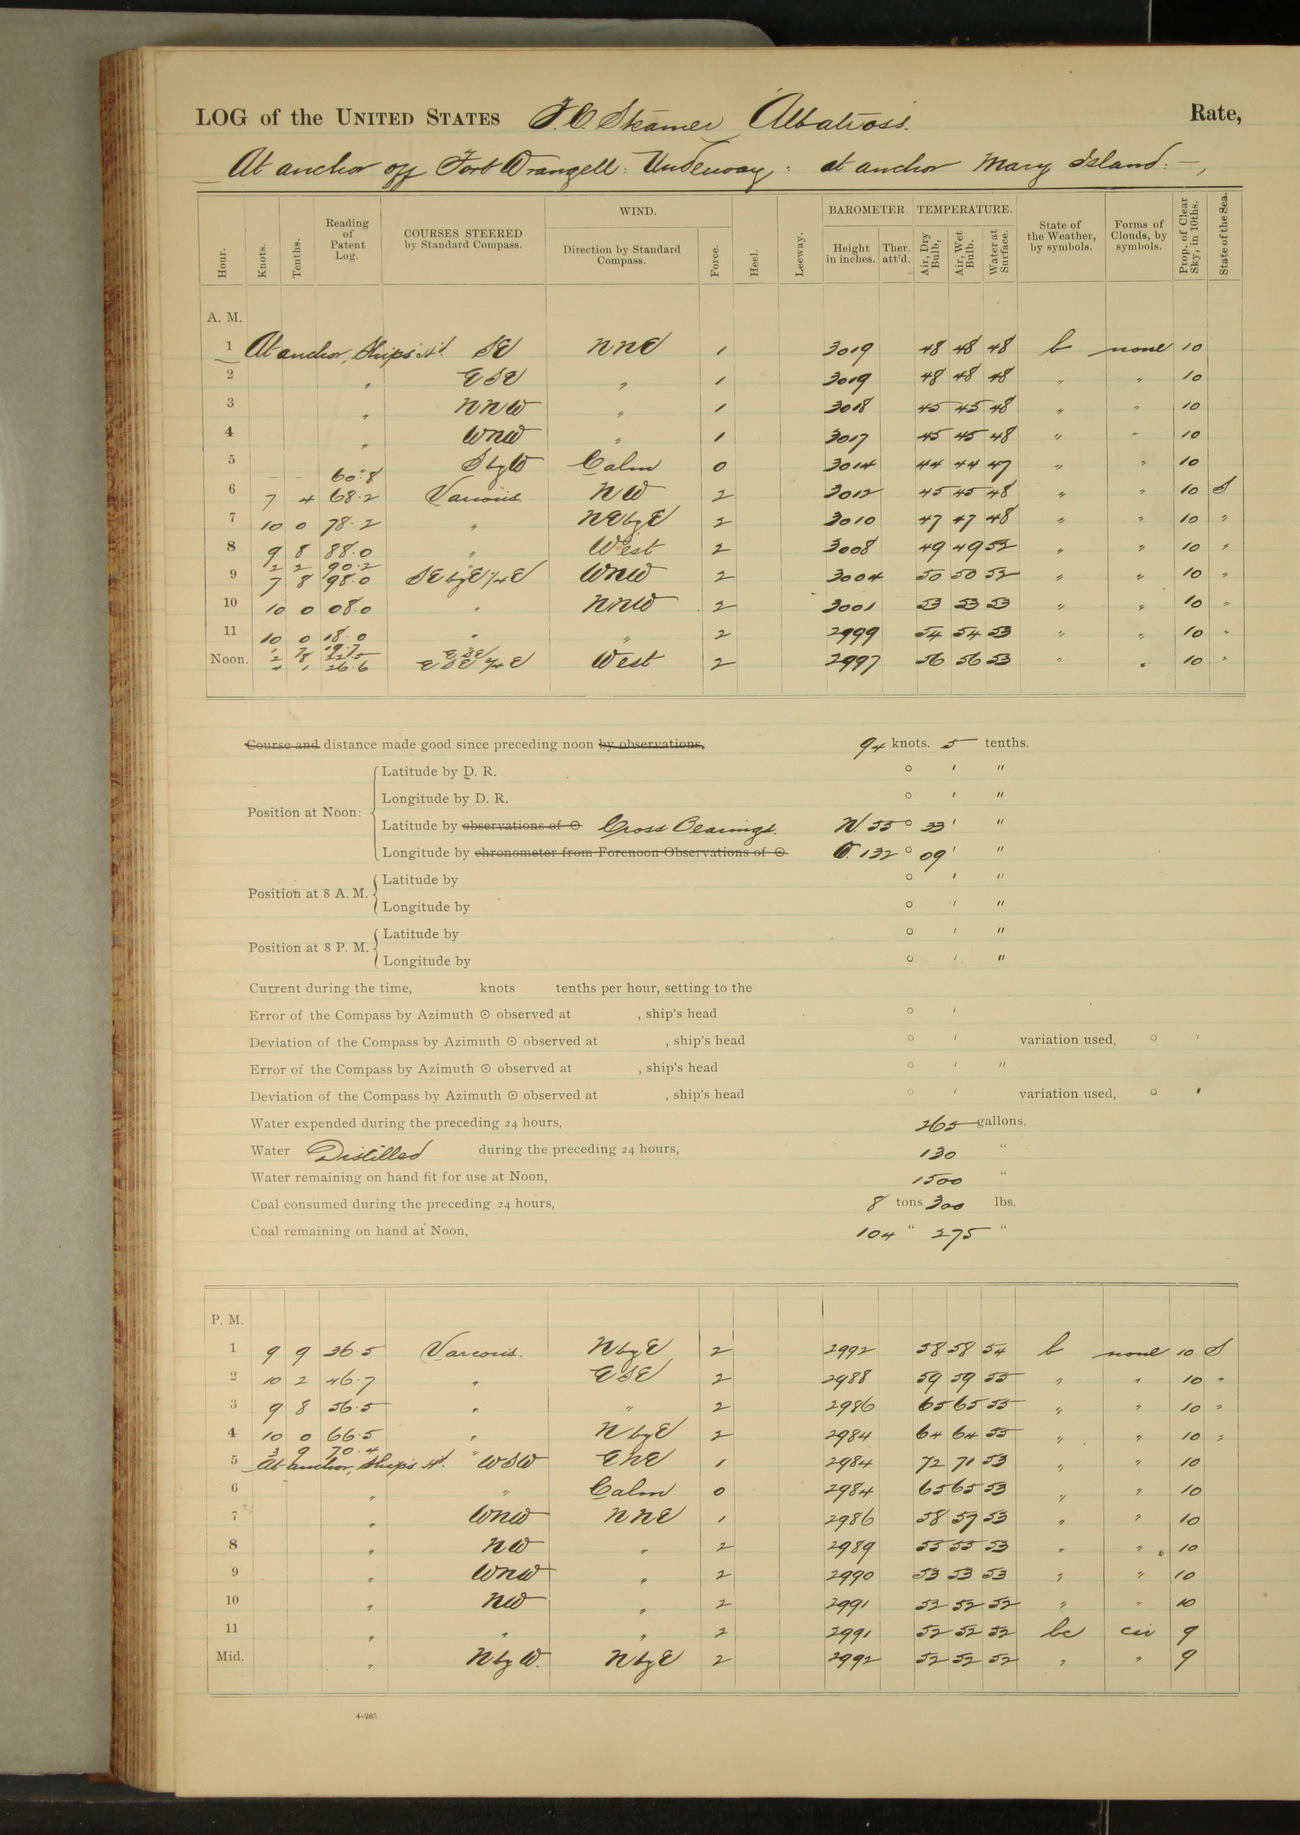 LOG of the UNITED STATES F. C. Steamer Albatross. Rate,
At anchor off Fort Wrangell: Underway: at anchor Mary Island: —,
Hour. Knots. Tenths. Reading of Patent Log. COURSES STEERED by Standard Compass. WIND. Direction by Standard Compass. Force. Heel. Leeway. BAROMETER. Height in inches. Ther. att'd. TEMPERATURE. Air, Dry Bulb, Air, Wet Bulb. Water at Surface. State of the Weather, by symbols. Forms of Clouds, by symbols. Prop. of Clear Sky, in 10ths. State of the Sea.
A. M.
1 At anchor, Ship's H'd. SE NNE 1 3019 48 48 48 b none 10
2 " ESE " 1 3019 48 48 48 " " 10
3 " NNW " 1 3018 45 45 48 " " 10
4 " WNW " 1 3017 45 45 48 " " 10
5 - - 60.8 S by W Calm 0 3014 44 44 47 " " 10
6 7 4 68.2 Various NW 2 3012 45 45 48 " " 10 S
7 10 0 78.2 " NE by E 2 3010 47 47 48 " " 10 "
8 9 8 88.0 " West 2 3008 49 49 52 " " 10 "
2 2 90.2
9 7 8 98.0 SE by E 1/4 E WNW 2 3004 50 50 52 " " 10 "
10 10 0 08.0 " NNW 2 3001 53 53 53 " " 10 "
11 10 0 18.0 " " 2 2999 54 54 53 " " 10 "
1 7 19.7
2 8 22.5 ESE
Noon. 4 1 26.6 ESE 3/4 E West 2 2997 56 56 53 " 10 "
Course and distance made good since preceding noon by observations, 94 knots. 5 tenths.
Latitude by D. R. ° ' "
Longitude by D. R. ° ' "
Position at Noon:
Latitude by observations of ☉ Cross Bearings. N. 55° 33' "
Longitude by chronometer from Forenoon Observations of ☉ W. 132° 09' "
Latitude by ° ' "
Position at 8 A. M.
Longitude by ° ' "
Latitude by ° ' "
Position at 8 P. M.
Longitude by ° ' "
Current during the time, knots tenths per hour, setting to the
Error of the Compass by Azimuth ☉ observed at , ship's head ° '
Deviation of the Compass by Azimuth ☉ observed at , ship's head ° ' variation used, ° '
Error of the Compass by Azimuth ☉ observed at , ship's head ° ' "
Deviation of the Compass by Azimuth ☉ observed at , ship's head ° ' variation used, ° '
Water expended during the preceding 24 hours, 265 gallons.
Water Distilled during the preceding 24 hours, 130 "
Water remaining on hand fit for use at Noon, 1500 "
Coal consumed during the preceding 24 hours, 8 tons 300 lbs.
Coal remaining on hand at Noon, 104 " 275 "
P. M.
1 9 9 36.5 Various. N by E 2 2992 58 58 54 b none 10 S
2 10 2 46.7 " ESE 2 2988 59 59 55 " " 10 "
3 9 8 56.5 " " 2 2986 65 65 55 " " 10 "
4 10 0 66.5 " N by E 2 2984 64 64 55 " " 10 "
3 9 70.4 "
5 At anchor, Ship's H'd. WSW ENE 1 2984 72 71 53 " " 10
6 " " Calm 0 2984 65 65 53 " " 10
7 " WNW NNE 1 2986 58 57 53 " " 10
8 " NW " 2 2989 55 55 53 " " 10
9 " WNW " 2 2990 53 53 53 " " 10
10 " NW " 2 2991 52 52 52 " " 10
11 " " " 2 2991 52 52 52 bc cir 9
Mid. " N by W. N by E 2 2992 52 52 52 " " 9
4-265